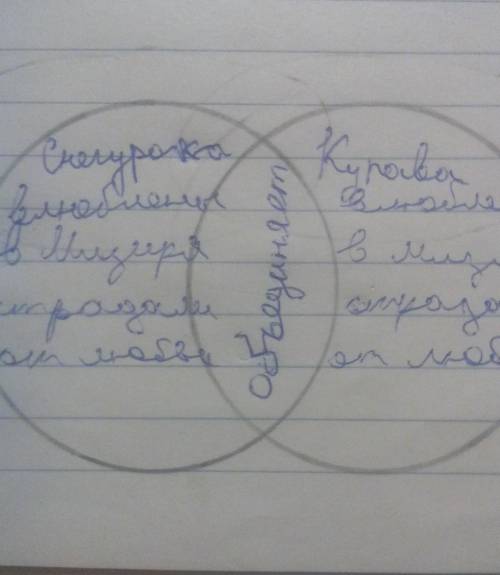 Снегурочка
влюблены
в Мизгиря
страдали
от любви
Объединяет
Купава
влюбле
в Мизг
страда
от люб